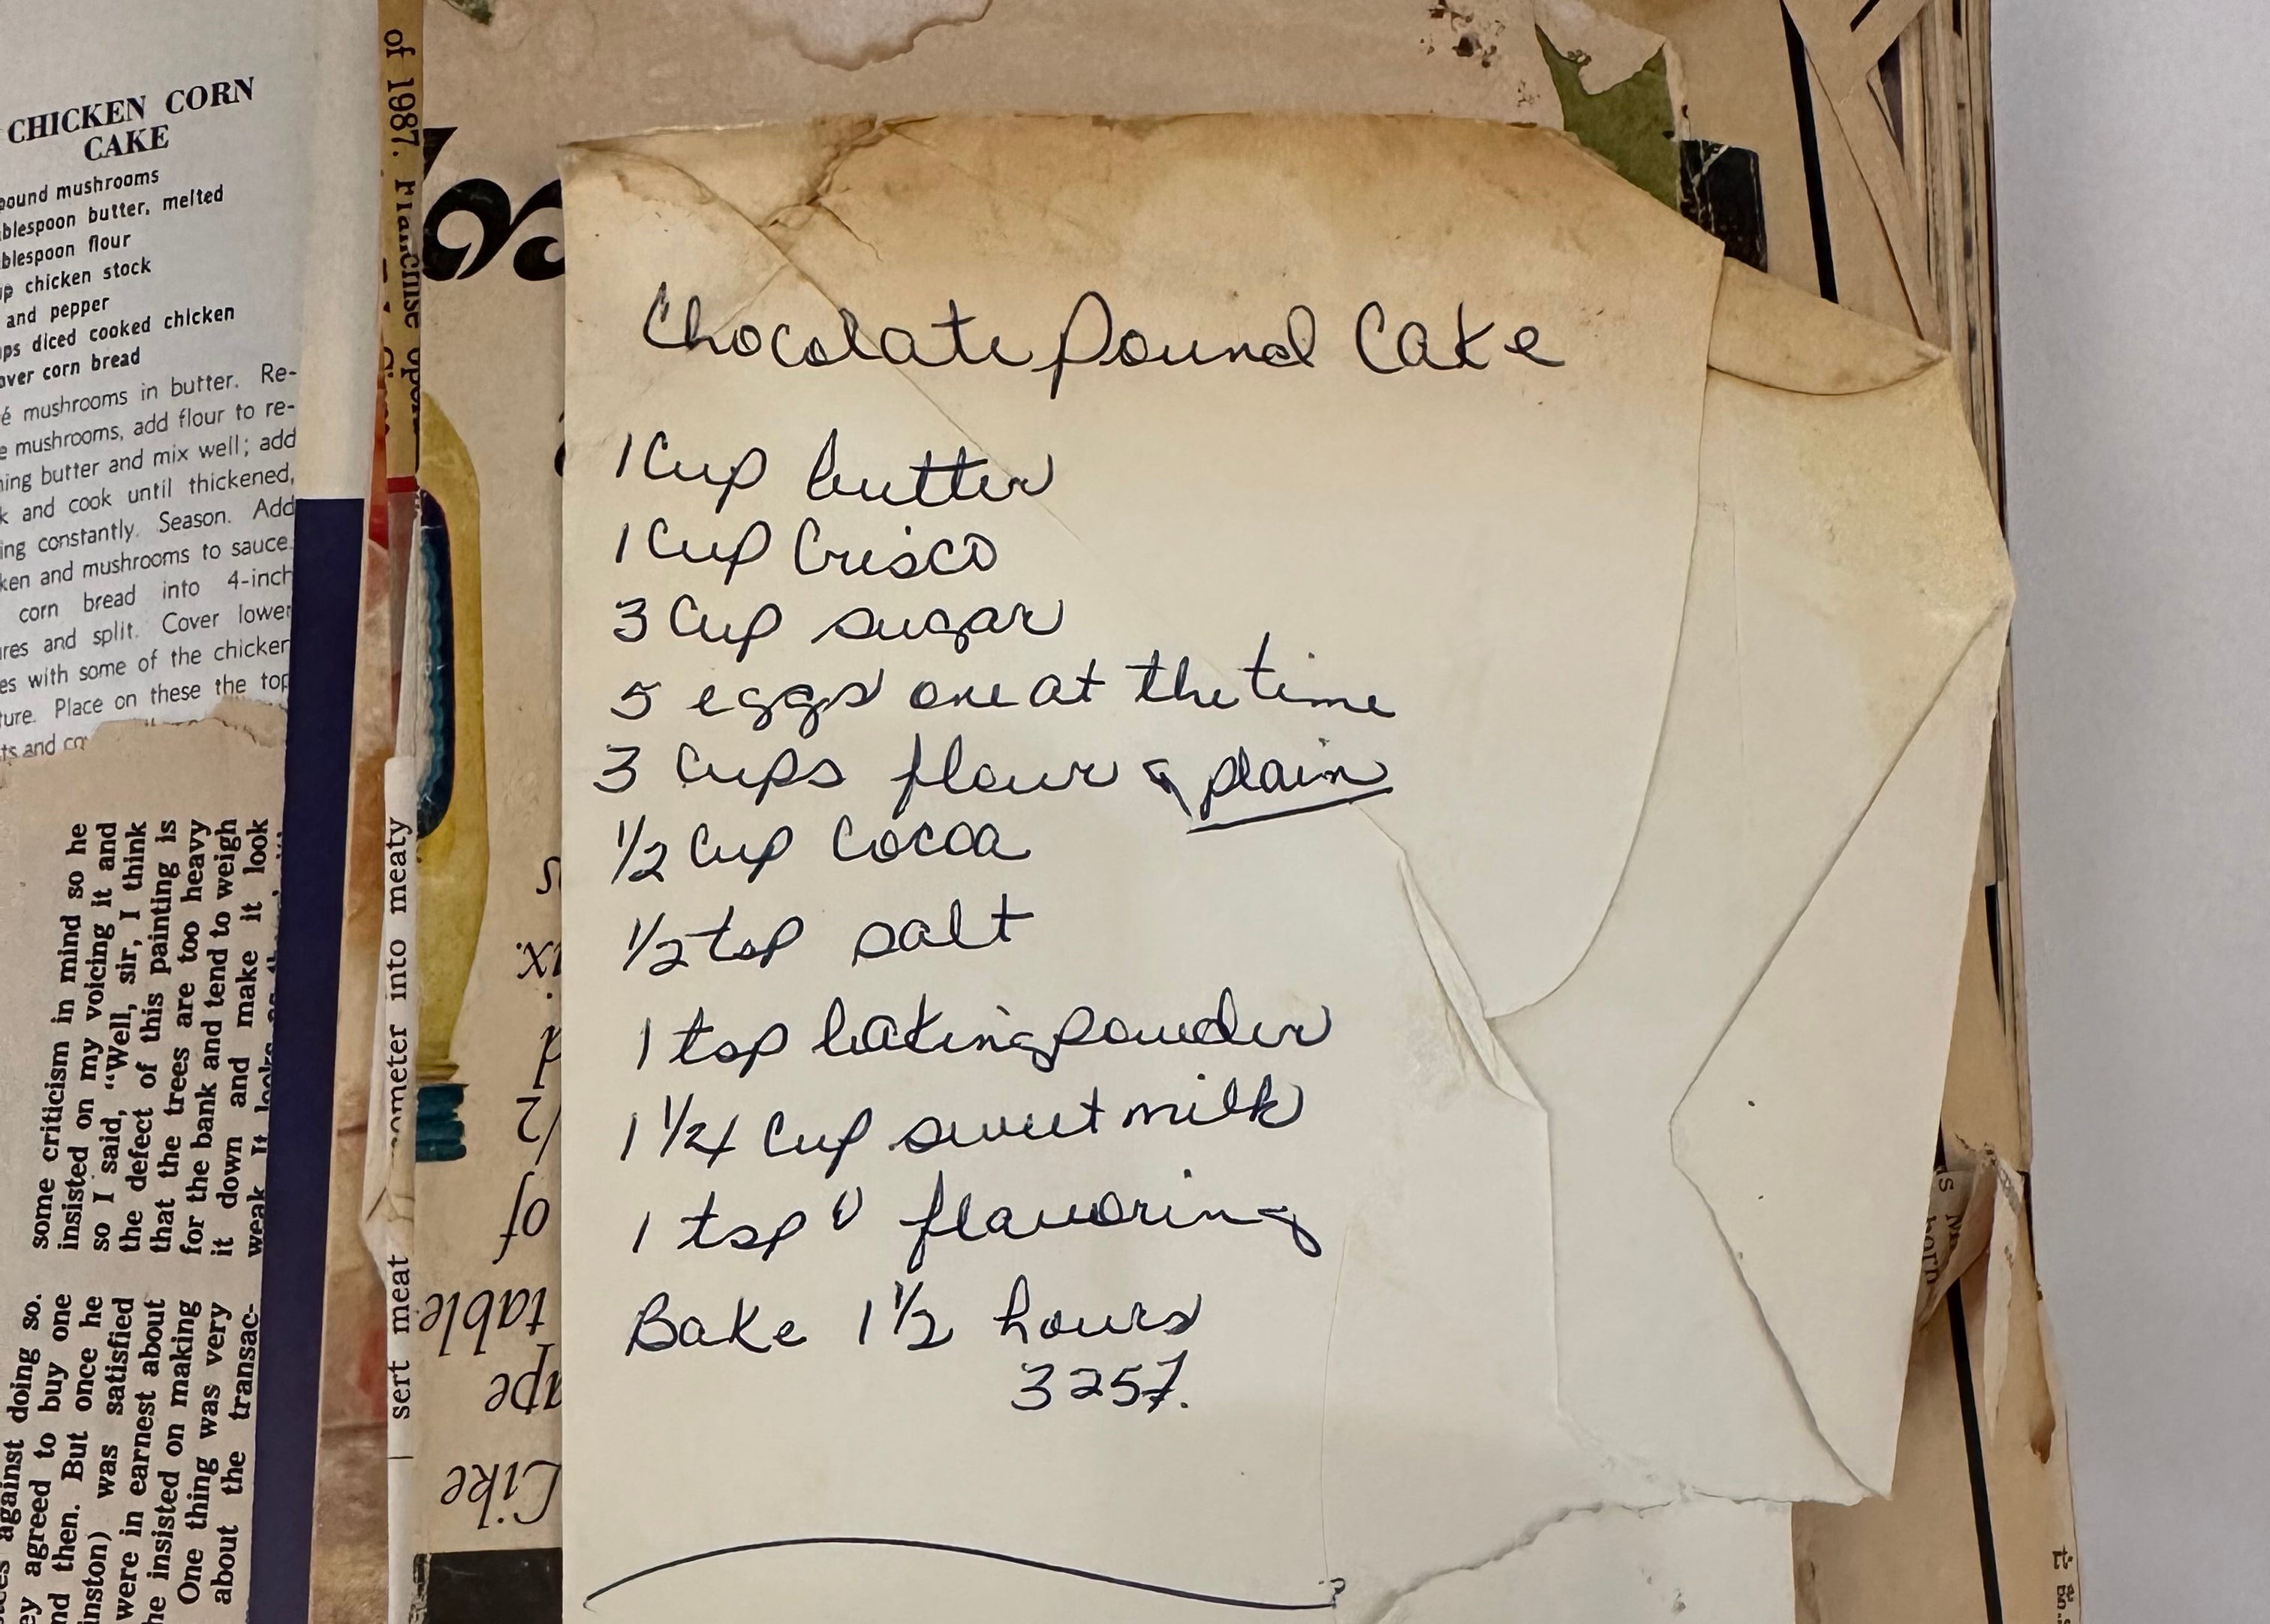 CHICKEN CORN
CAKE
pound mushrooms
blespoon butter, melted
blespoon flour
up chicken stock
and pepper
ups diced cooked chicken
over corn bread
é mushrooms in butter. Re-
e mushrooms, add flour to re-
ning butter and mix well; add
k and cook until thickened,
ing constantly. Season. Add
ken and mushrooms to sauce.
corn bread into 4-inch
ures and split. Cover lower
es with some of the chicken
ture. Place on these the top
ts and co
some criticism in mind so he
insisted on my voicing it and
so I said, “Well, sir, I think
the defect of this painting is
that the trees are too heavy
for the bank and tend to weigh
it down and make it look
weak. It looks
against doing so.
ey agreed to buy one
nd then. But once he
inston) was satisfied
were in earnest about
he insisted on making
One thing was very
about the transac-
of 1987. Francine
sert meat
ometer into meaty
of
table
ape
Like
Chocolate Pound Cake
1 Cup butter
1 Cup Crisco
3 Cup sugar
5 eggs one at the time
3 Cups flour plain
1/2 Cup Cocoa
1/2 tsp salt
1 tsp baking powder
1 1/4 Cup sweet milk
1 tsp v flavoring
Bake 1 1/2 hours
325